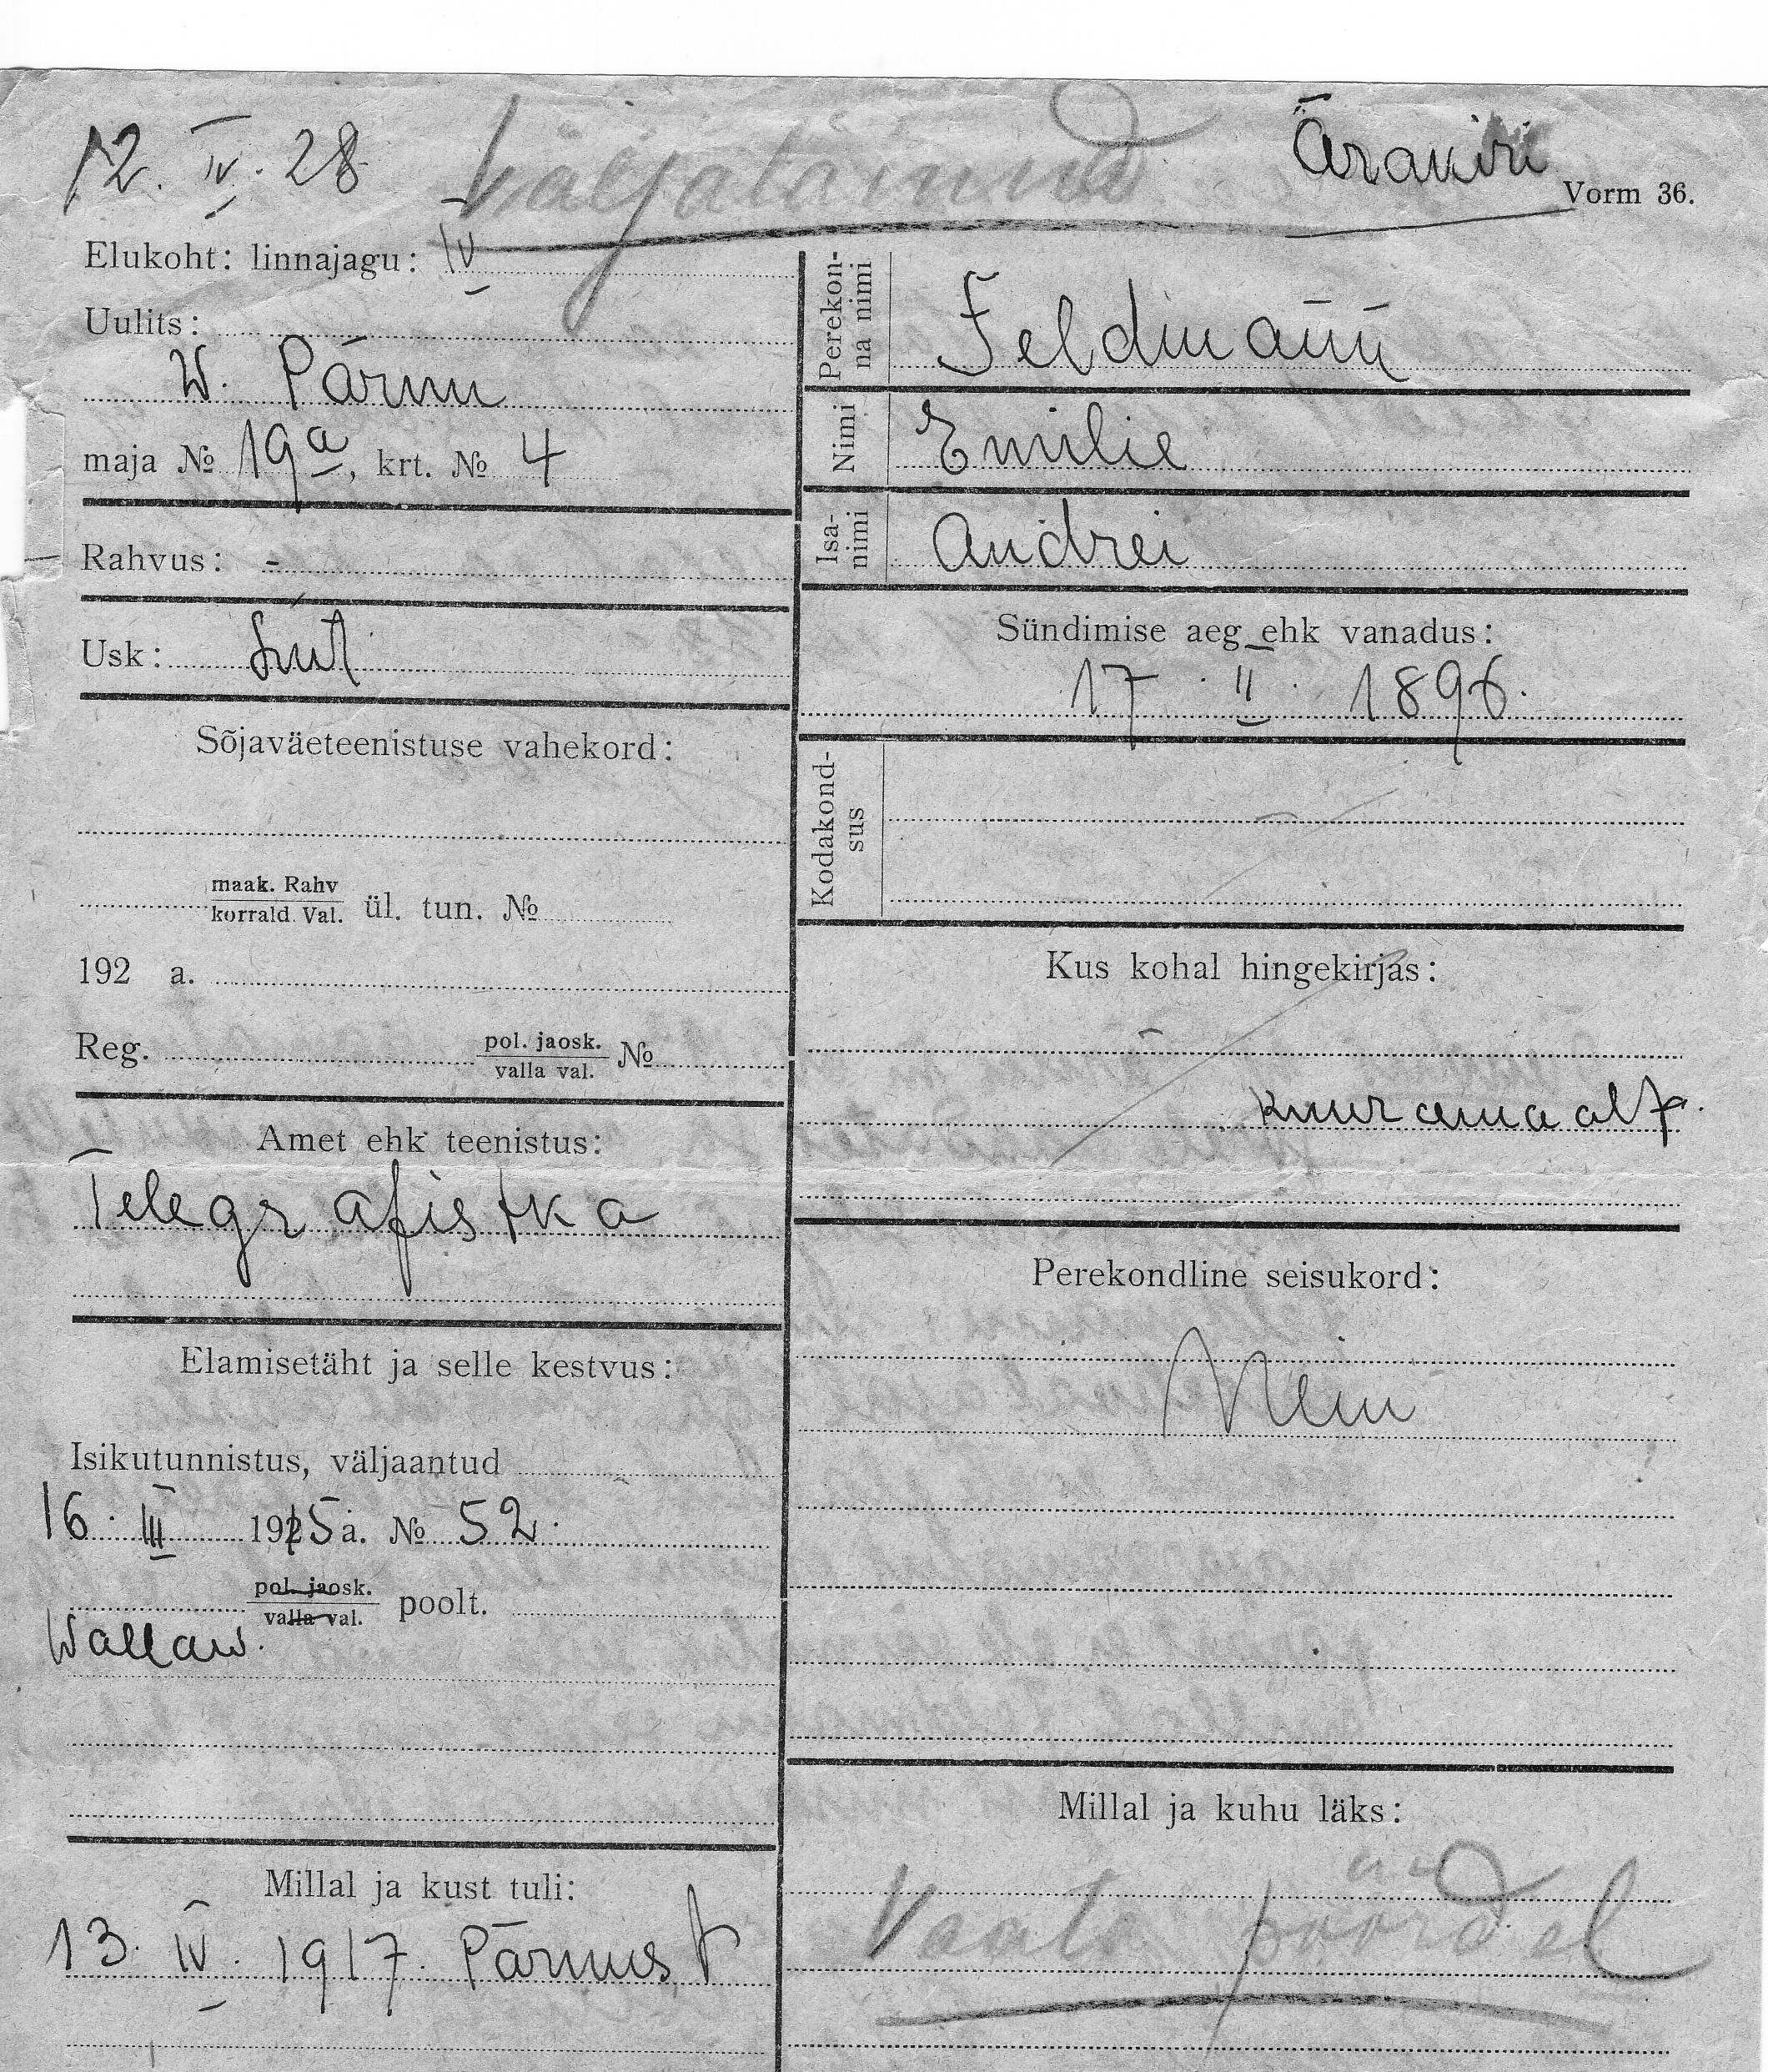 12. IV. 28
Väljatäinud
Ärakiri
Vorm 36.
Elukoht: linnajagu: IV
Uulits:
W. Pärnu
maja № 19a, krt. № 4
Rahvus: -
Usk: Lut
Sõjaväeteenistuse vahekord:
maak. Rahv
korrald. Val. ül. tun. №
192 a.
Reg. pol. jaosk.
valla val. №
Amet ehk teenistus:
Telegrafistka
Elamisetäht ja selle kestvus:
Isikutunnistus, väljaantud
16. III 1915 a. № 52.
pol. jaosk.
valla val. poolt.
Wallaw.
Millal ja kust tuli:
13. IV. 1917. Pärnust
Perekon-
na nimi
Feldmann
Nimi
Emilie
Isa-
nimi
Andrei
Sündimise aeg ehk vanadus:
17. II. 1896.
Kodakond-
sus
Kus kohal hingekirjas:
Kuuramaalt.
Perekondline seisukord:
Millal ja kuhu läks:
Vaata pöördel